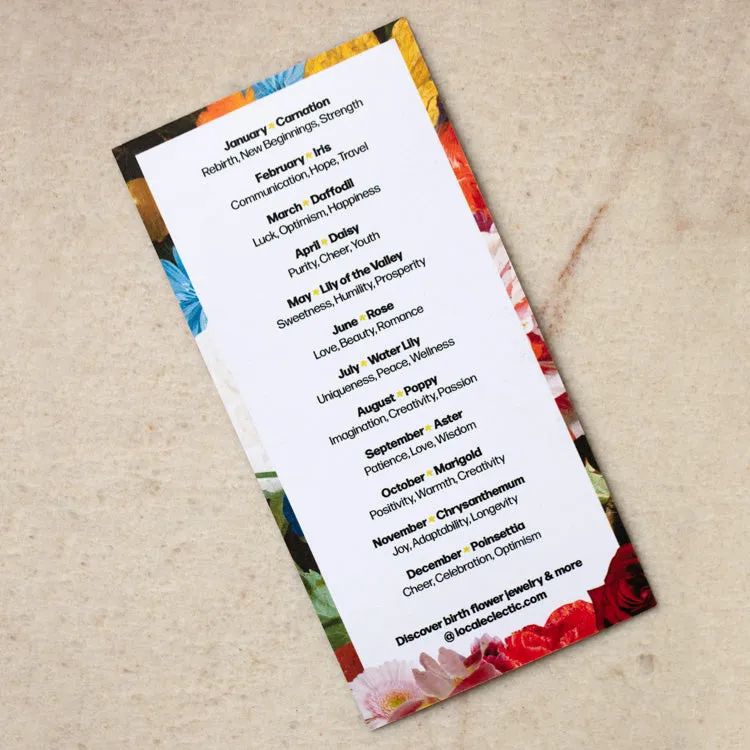 January * Carnation
Rebirth, New Beginnings, Strength
February * Iris
Communication, Hope, Travel
March * Daffodil
Luck, Optimism, Happiness
April * Daisy
Purity, Cheer, Youth
May * Lily of the Valley
Sweetness, Humility, Prosperity
June * Rose
Love, Beauty, Romance
July * Water Lily
Uniqueness, Peace, Wellness
August * Poppy
Imagination, Creativity, Passion
September * Aster
Patience, Love, Wisdom
October * Marigold
Positivity, Warmth, Creativity
November * Chrysanthemum
Joy, Adaptability, Longevity
December * Poinsettia
Cheer, Celebration, Optimism
Discover birth flower jewelry & more
@localeclectic.com